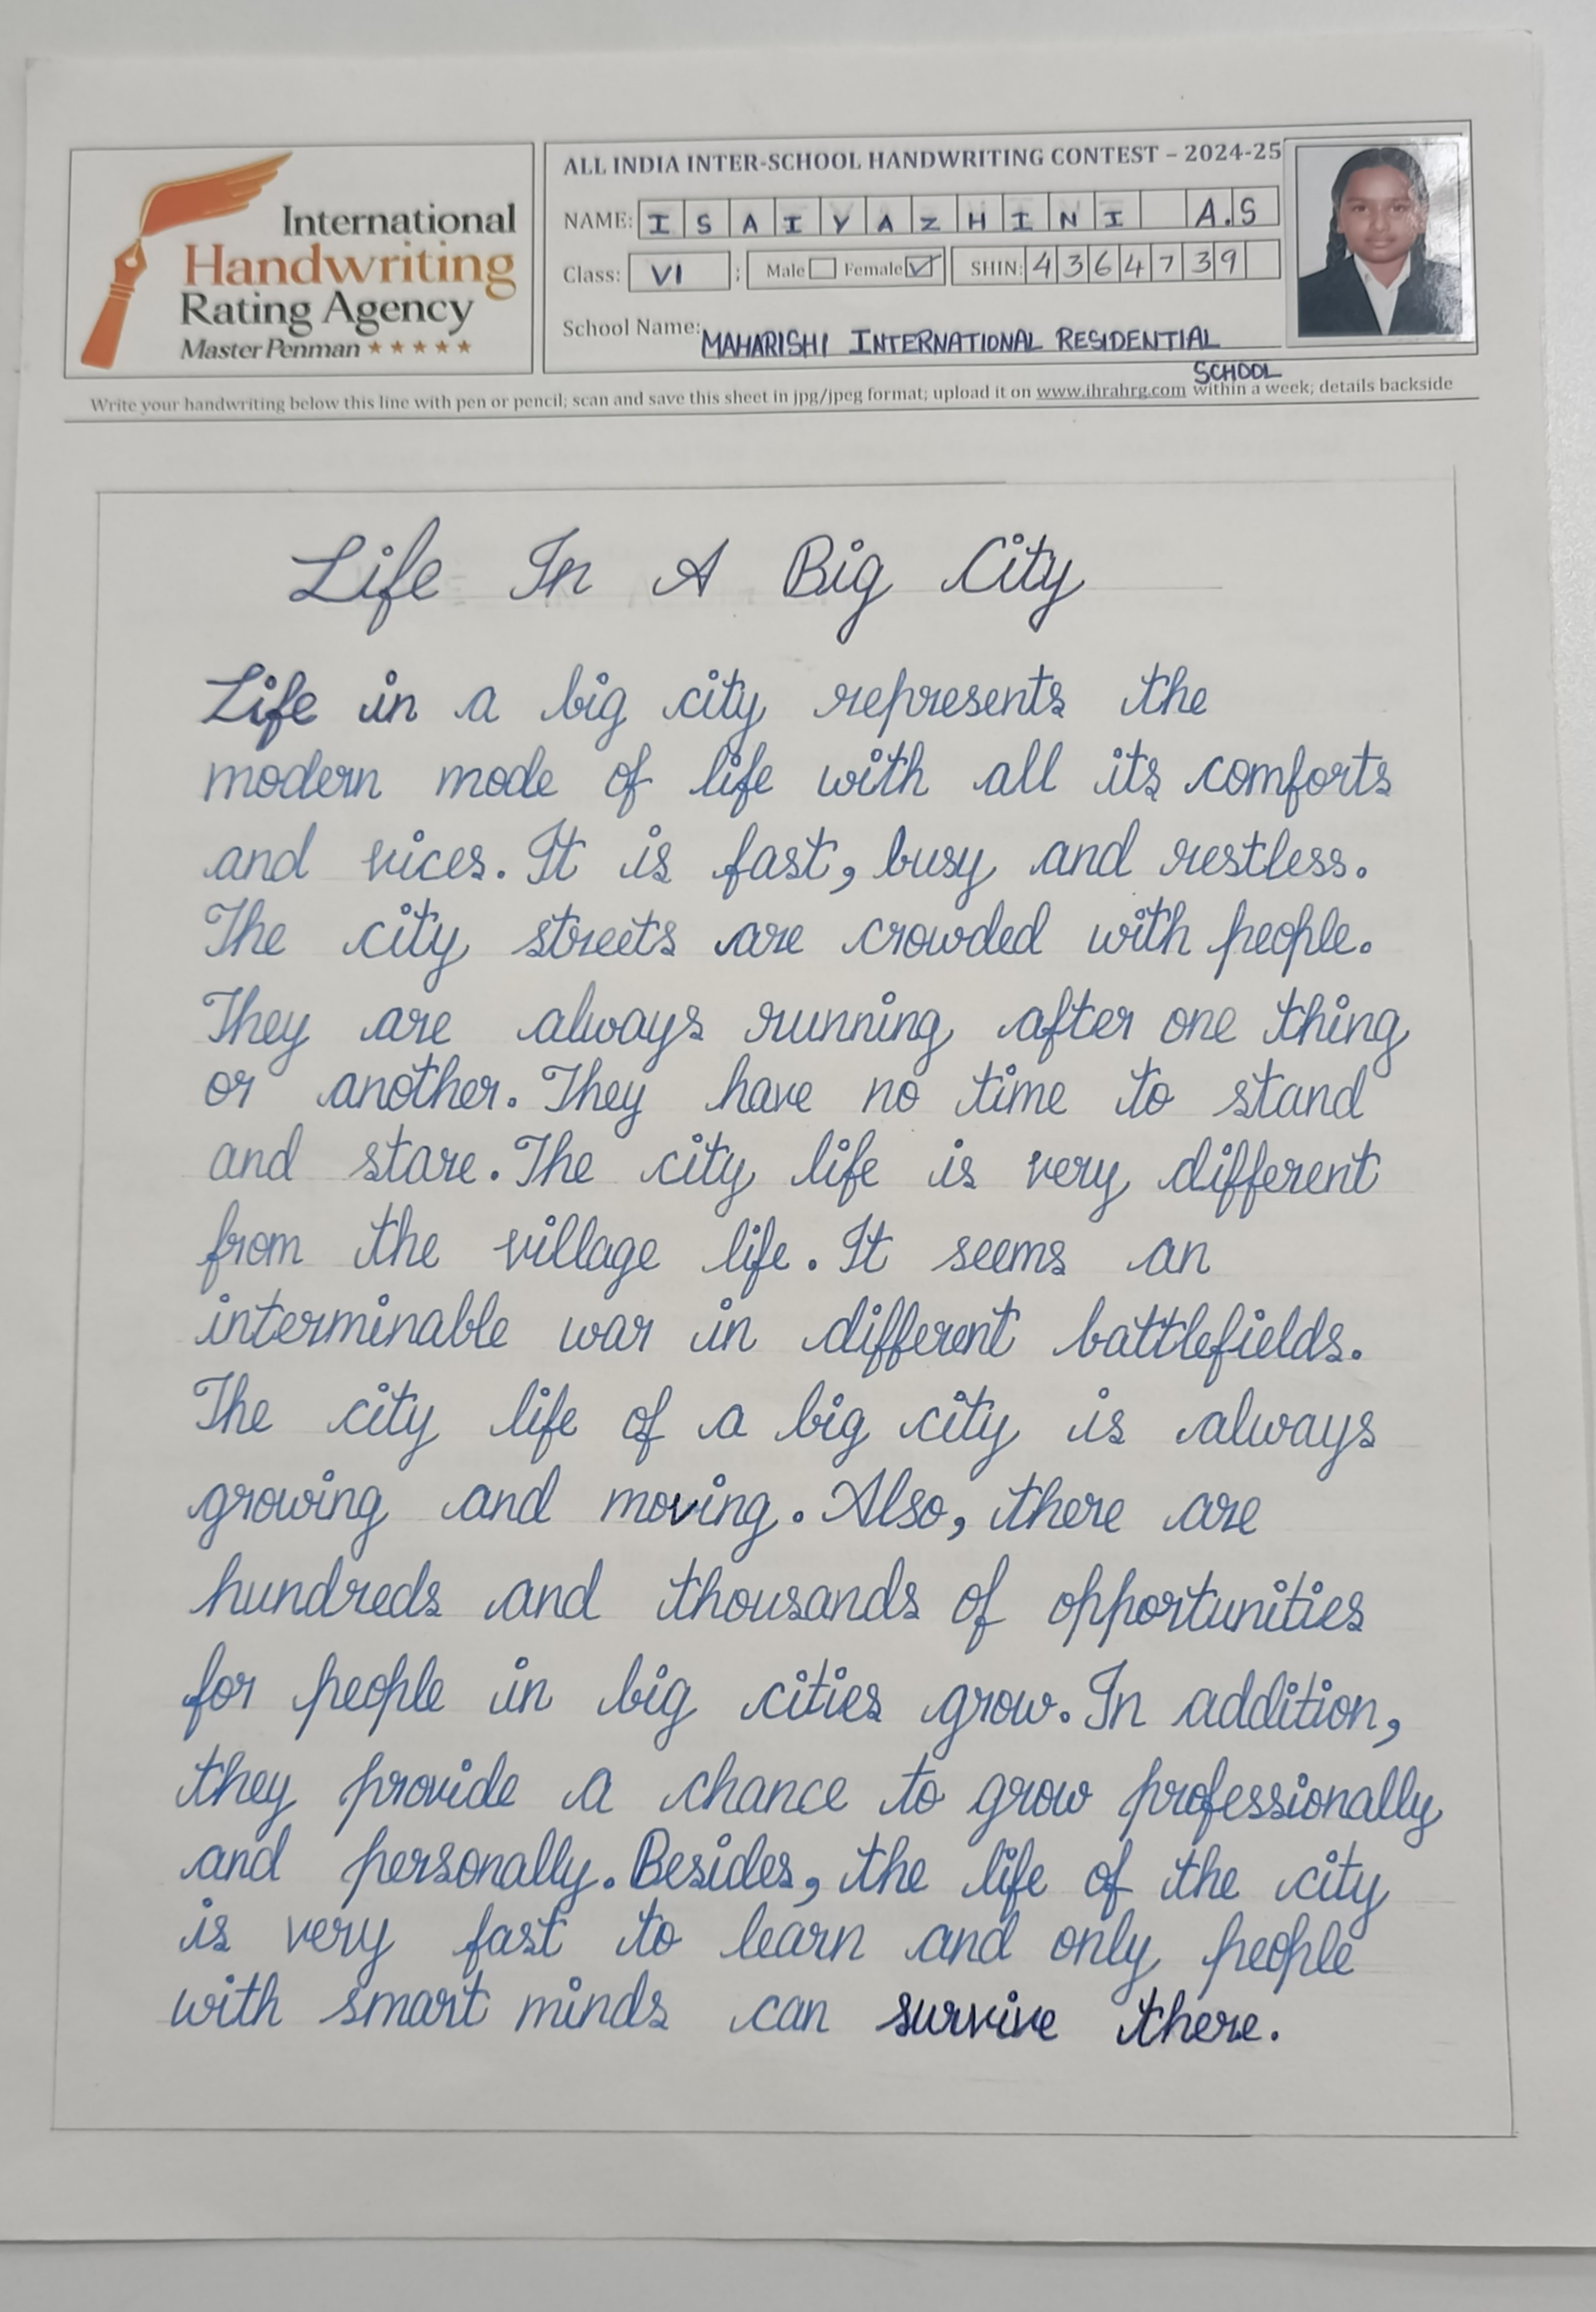 International
Handwriting
Rating Agency
Master Penman ★★★★★
ALL INDIA INTER-SCHOOL HANDWRITING CONTEST – 2024-25
NAME: ISAIYAZHINI A.S
Class: VI ; Male Female ✓ SHIN: 4364739
School Name: MAHARISHI INTERNATIONAL RESIDENTIAL
SCHOOL
Write your handwriting below this line with pen or pencil; scan and save this sheet in jpg/jpeg format; upload it on www.ihrahrg.com within a week; details backside
Life In A Big City
Life in a big city represents the
modern mode of life with all its comforts
and vices. It is fast, busy and restless.
The city streets are crowded with people.
They are always running after one thing
or another. They have no time to stand
and stare. The city life is very different
from the village life. It seems an
interminable war in different battlefields.
The city life of a big city is always
growing and moving. Also, there are
hundreds and thousands of opportunities
for people in big cities grow. In addition,
they provide a chance to grow professionally
and personally. Besides, the life of the city
is very fast to learn and only people
with smart minds can survive there.